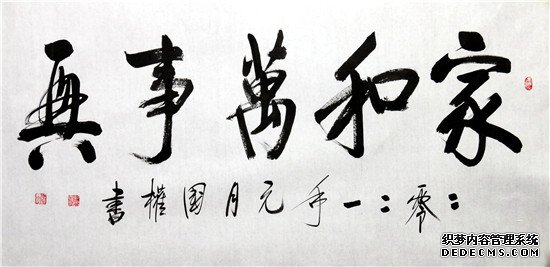 家和萬事興
二零二一年元月国權書
织梦内容管理系统
DEDECMS.COM